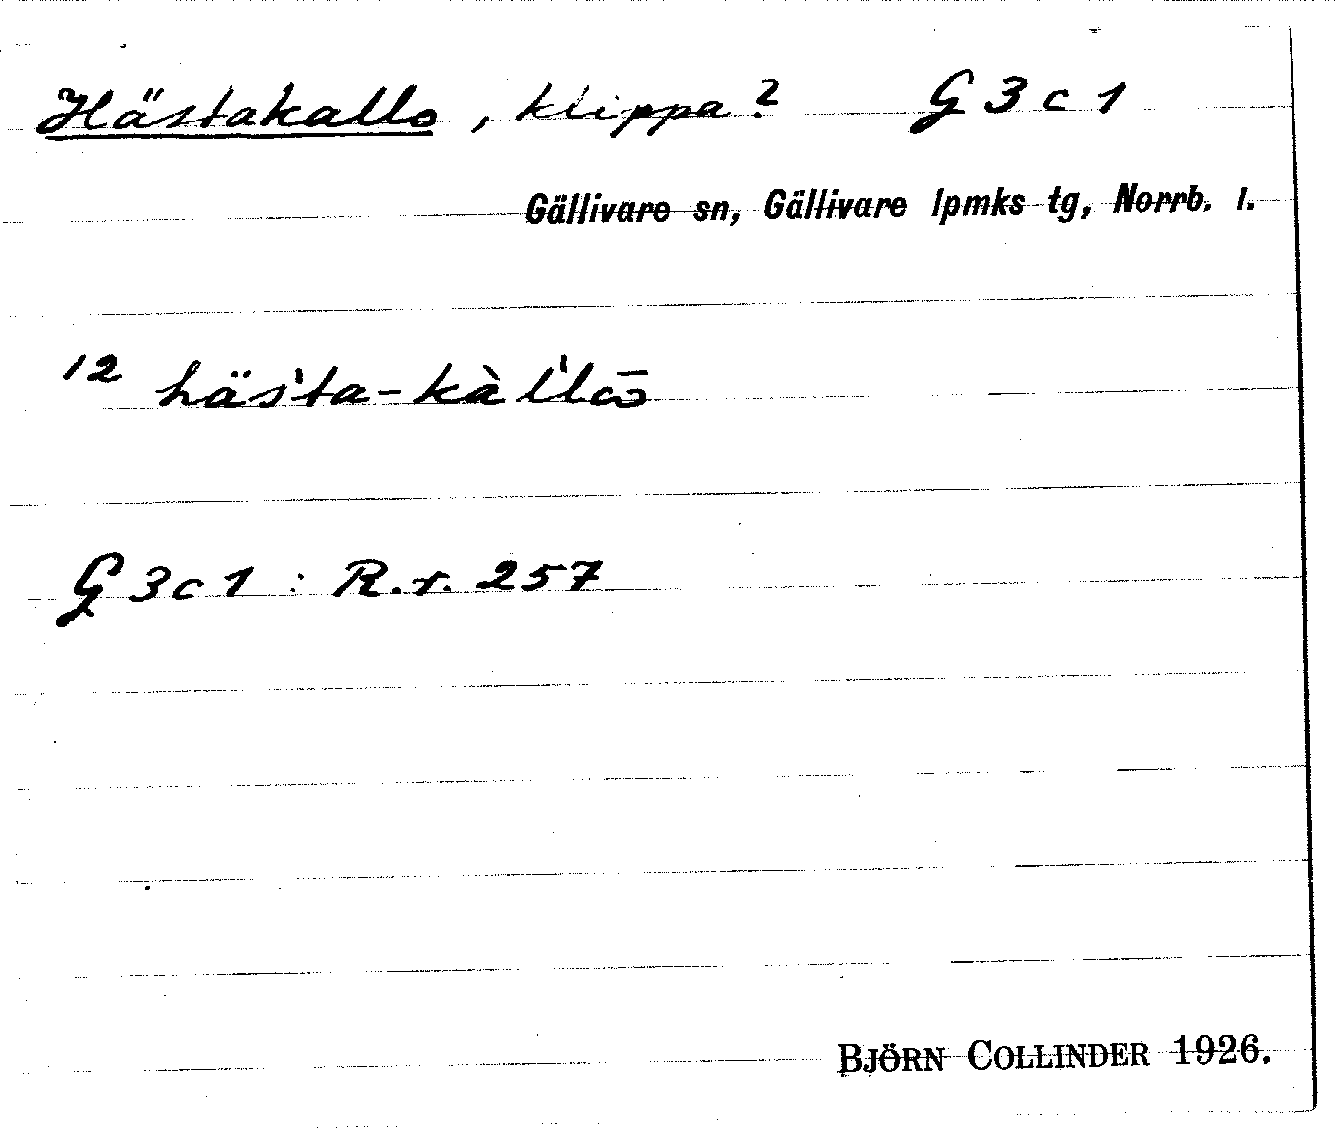 Hästakallo, klippa? G 3 c 1
Gällivare sn, Gällivare lpmks tg, Norrb. l.
12 häs'ta-kàl'lō
G 3 c 1 : R.r. 257
BJÖRN COLLINDER 1926.